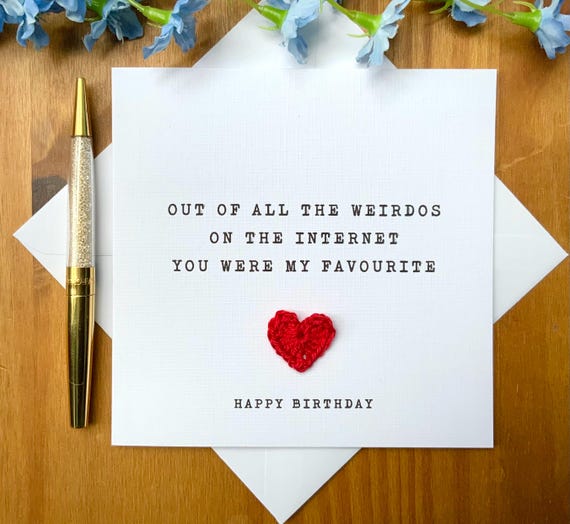 OUT OF ALL THE WEIRDOS
ON THE INTERNET
YOU WERE MY FAVOURITE
HAPPY BIRTHDAY